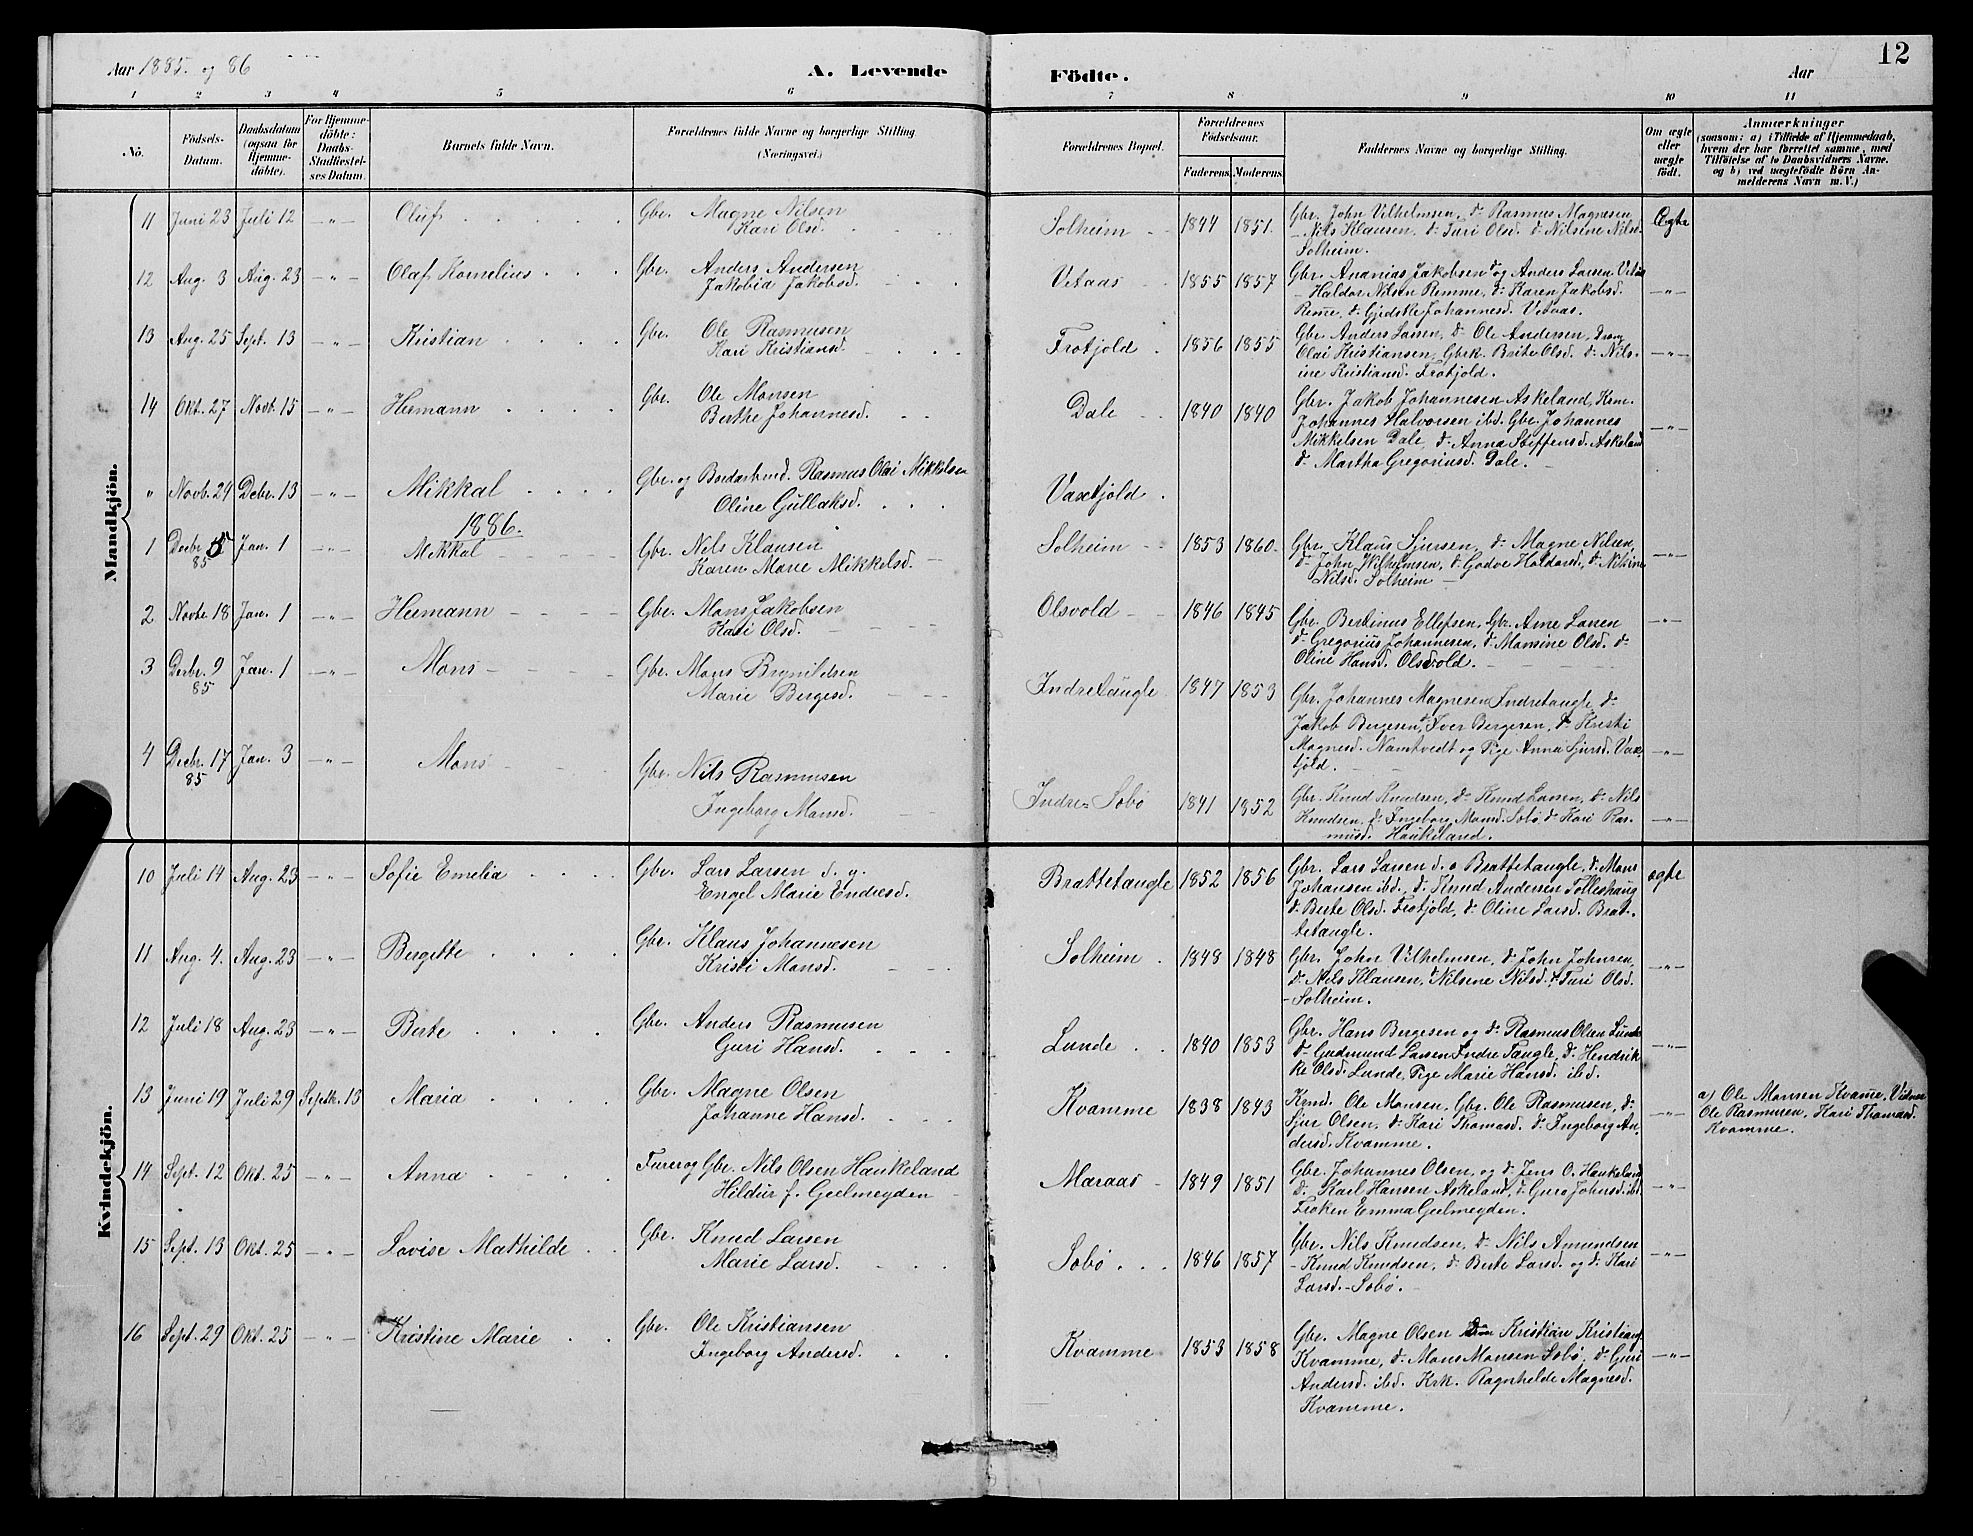 Aar 1885. og 86
A. Levende
Födte.
Aar
12
1 2 3 4 5 6 7 8 9 10 11
No.
Födsels-
Datum.
Daabsdatum
(ogsaa for
Hjemme-
döbte).
For Hjemme-
döbte:
Daabs-
Stadfæstel-
ses Datum.
Barnets fulde Navn.
Forældrenes fulde Navne og borgerlige Stilling
(Næringsvei.)
Forældrenes Bopæl.
Forældrenes
Födselsaar.
Faderens. Moderens.
Faddernes Navne og borgerlige Stilling.
Om ægte
eller
uægte
født.
Anmærkninger
(saasom: a) i Tilfælde af Hjemmedaab,
hvem der har forrettet samme, med
Tilföielse af to Daabsvidners Navne.
og b) ved uægtefödte Börn An-
melderens Navn m. V.)
Mandkjön.
11 Juni 23 Juli 12 -"- Oluf Gbr. Magne Nilsen
Kari Olsd.
Solheim 1844 1851. Gbr. John Vilhelmsen, do Rasmus Magnesen
- Nils Klausen, do Turi Olsd. do Nilsine Nilsd.
Solheim.
Ægte
12 Aug. 3 Aug. 23 -"- Olaf Kornelius Gbr. Anders Andersen
Jakobia Jakobsd.
Vetaas 1855 1857 Gbr. Ananias Jakobsen do og Anders Larsen Vetaas
- Haldor Nilsen Remme, do Karen Jakobsd.
Reme, do Gjertke Johannesd. Vetaas.
-"-
13 Aug. 25 Sept. 13 -"- Kristian Gbr. Ole Rasmusen
Kari Kristiansd.
Frotjold 1856 1855 Gbr. Anders Larsen, do Ole Andersen, Dreng
Olai Kristiansen, Gbrk. Brite Olsd. do Nils-
ine Kristiansd. Frotjold.
-"-
14 Okt. 27 Novb. 15 -"- Hermann Gbr. Ole Monsen
Berthe Johannesd.
Dale 1840 1840 Gbr. Jakob Johannesen Askeland, Kem.
Johannes Halvorsen ibd. Gbr. Johannes
Mikkelsen Dale, do Anna Steffensd. Askeland
do Martha Gregoriusd. Dale.
-"-
" Novb. 24 Debr. 13 -"- Mikkal Gbr. og Rasmus Olai Mikkelsen
Oline Gullaksd.
Vaxtjold
1886.
1 Decbr. 5 Jan. 1 -"- Mikkal Gbr. Nils Klausen
85 Karen Marie Mikkelsd.
Solheim 1853 1860. Gbr. Klaus Sjursen, do Magne Nilsen,
do John Wilhelmsen, do Godve Haldorsd., do Nilsine
Nilsd. Solheim
-"-
2 Novbr. 18 Jan. 1 -"- Hermann Gbr. Mons Jakobsen
Kari Olsd.
Olsvold 1846 1845 Gbr. Bertinus Ellefsen, Gbr. Arne Larsen
do Gregorius Johannesen, do Monsine Olsd. do
Oline Hansd. Olsvold.
-"-
3 Decbr. 9 Jan. 1 -"- Mons Gbr. Mons Brynildsen
85 Marie Bergesd.
Indretaugle 1847 1853 Gbr. Johannes Magnesen Indretaugle, do
Jakob Bergesen, do Iver Bergesen, do Kristi
Magnesd. Namtvedt og Pige Anna Sjursd. Vax-
tjold.
-"-
4 Decbr. 17 Jan. 3 -"- Mons Gbr. Nils Rasmusen
85 Ingeborg Monsd.
Indre-Sobö 1841 1852 Gbr. Knud Knudsen, do Knud Larsen, do Nils
Knudsen, do Ingeborg Monsd. Sobö do Kari Ras-
musd. Haukeland.
-"-
Kvindekjön.
10 Juli 14 Aug. 23 -"- Sofie Emelia Gbr. Lars Larsen d. y.
Engel Marie Endresd.
Brattetaugle 1852 1856 Gbr. Lars Larsen d. e Brattetaugle, do Mons
Johansen ibd., do Knud Andersen Tolleshaug
do Berte Olsd. Frotjold, do Oline Larsd. Brat-
tetaugle.
ægte
11 Aug. 4. Aug. 23 -"- Bergette Gbr. Klaus Johannesen
Kristi Monsd.
Solheim 1848 1848 Gbr. John Vilhelmsen, do John Johnsen,
do Nils Klausen, do Nilsine Nilsd. do Turi Olsd.
- Solheim.
-"-
12 Juli 18 Aug. 23 -"- Berte Gbr. Anders Rasmusen
Guri Hansd.
Lunde 1840 1853 Gbr. Hans Bergesen og do Rasmus Olsen Lunde
do Gudmund Larsen Indre Taugle, do Hendrik-
ke Olsd. Lunde, Pige Marie Hansd. ibd.
-"-
13 Juni 19 Juli 29 Septb. 13 Maria Gbr. Magne Olsen
Johanne Hansd.
Kvamme 1838 1843 Kemd. Ole Monsen, Gbr. Ole Rasmusen, do
Sjur Olsen, do Kari Thomasd. do Ingeborg An-
dersd. Kvamme.
-"- a) Ole Monsen Kvamme, Vidner
Ole Rasmusen, Kari Thomasd.
Kvamme.
14 Sept. 12 Okt. 25 -"- Anna Furer og Gbr. Nils Olsen Haukeland
Hildur f. Geelmeyden
Maraas 1849 1851 Gbr. Johannes Olsen, og do Jens O. Haukeland
do Karl Hansen Askeland, do Guro Johnsd. ibd.
Frøken Emma Geelmeyden.
-"-
15 Sept. 13 Okt. 25 -"- Lovise Mathilde Gbr. Knud Larsen
Marie Larsd.
Sobö 1846 1857 Gbr. Nils Knudsen, do Nils Amundsen
- Knud Knudsen, do Berte Larsd. og do Kari
Larsd. - Sobö.
-"-
16 Sept. 29 Okt. 25 -"- Kristine Marie Gbr. Ole Kristiansen
Ingeborg Andersd.
Kvamme 1853 1858 Gbr. Magne Olsen Kristian Kristians.
Kvamme, do Mons Monsen Sobö, do Guri
Andersd. ibd. Krk. Ragnhilde Magnesd.
Kvamme.
-"-